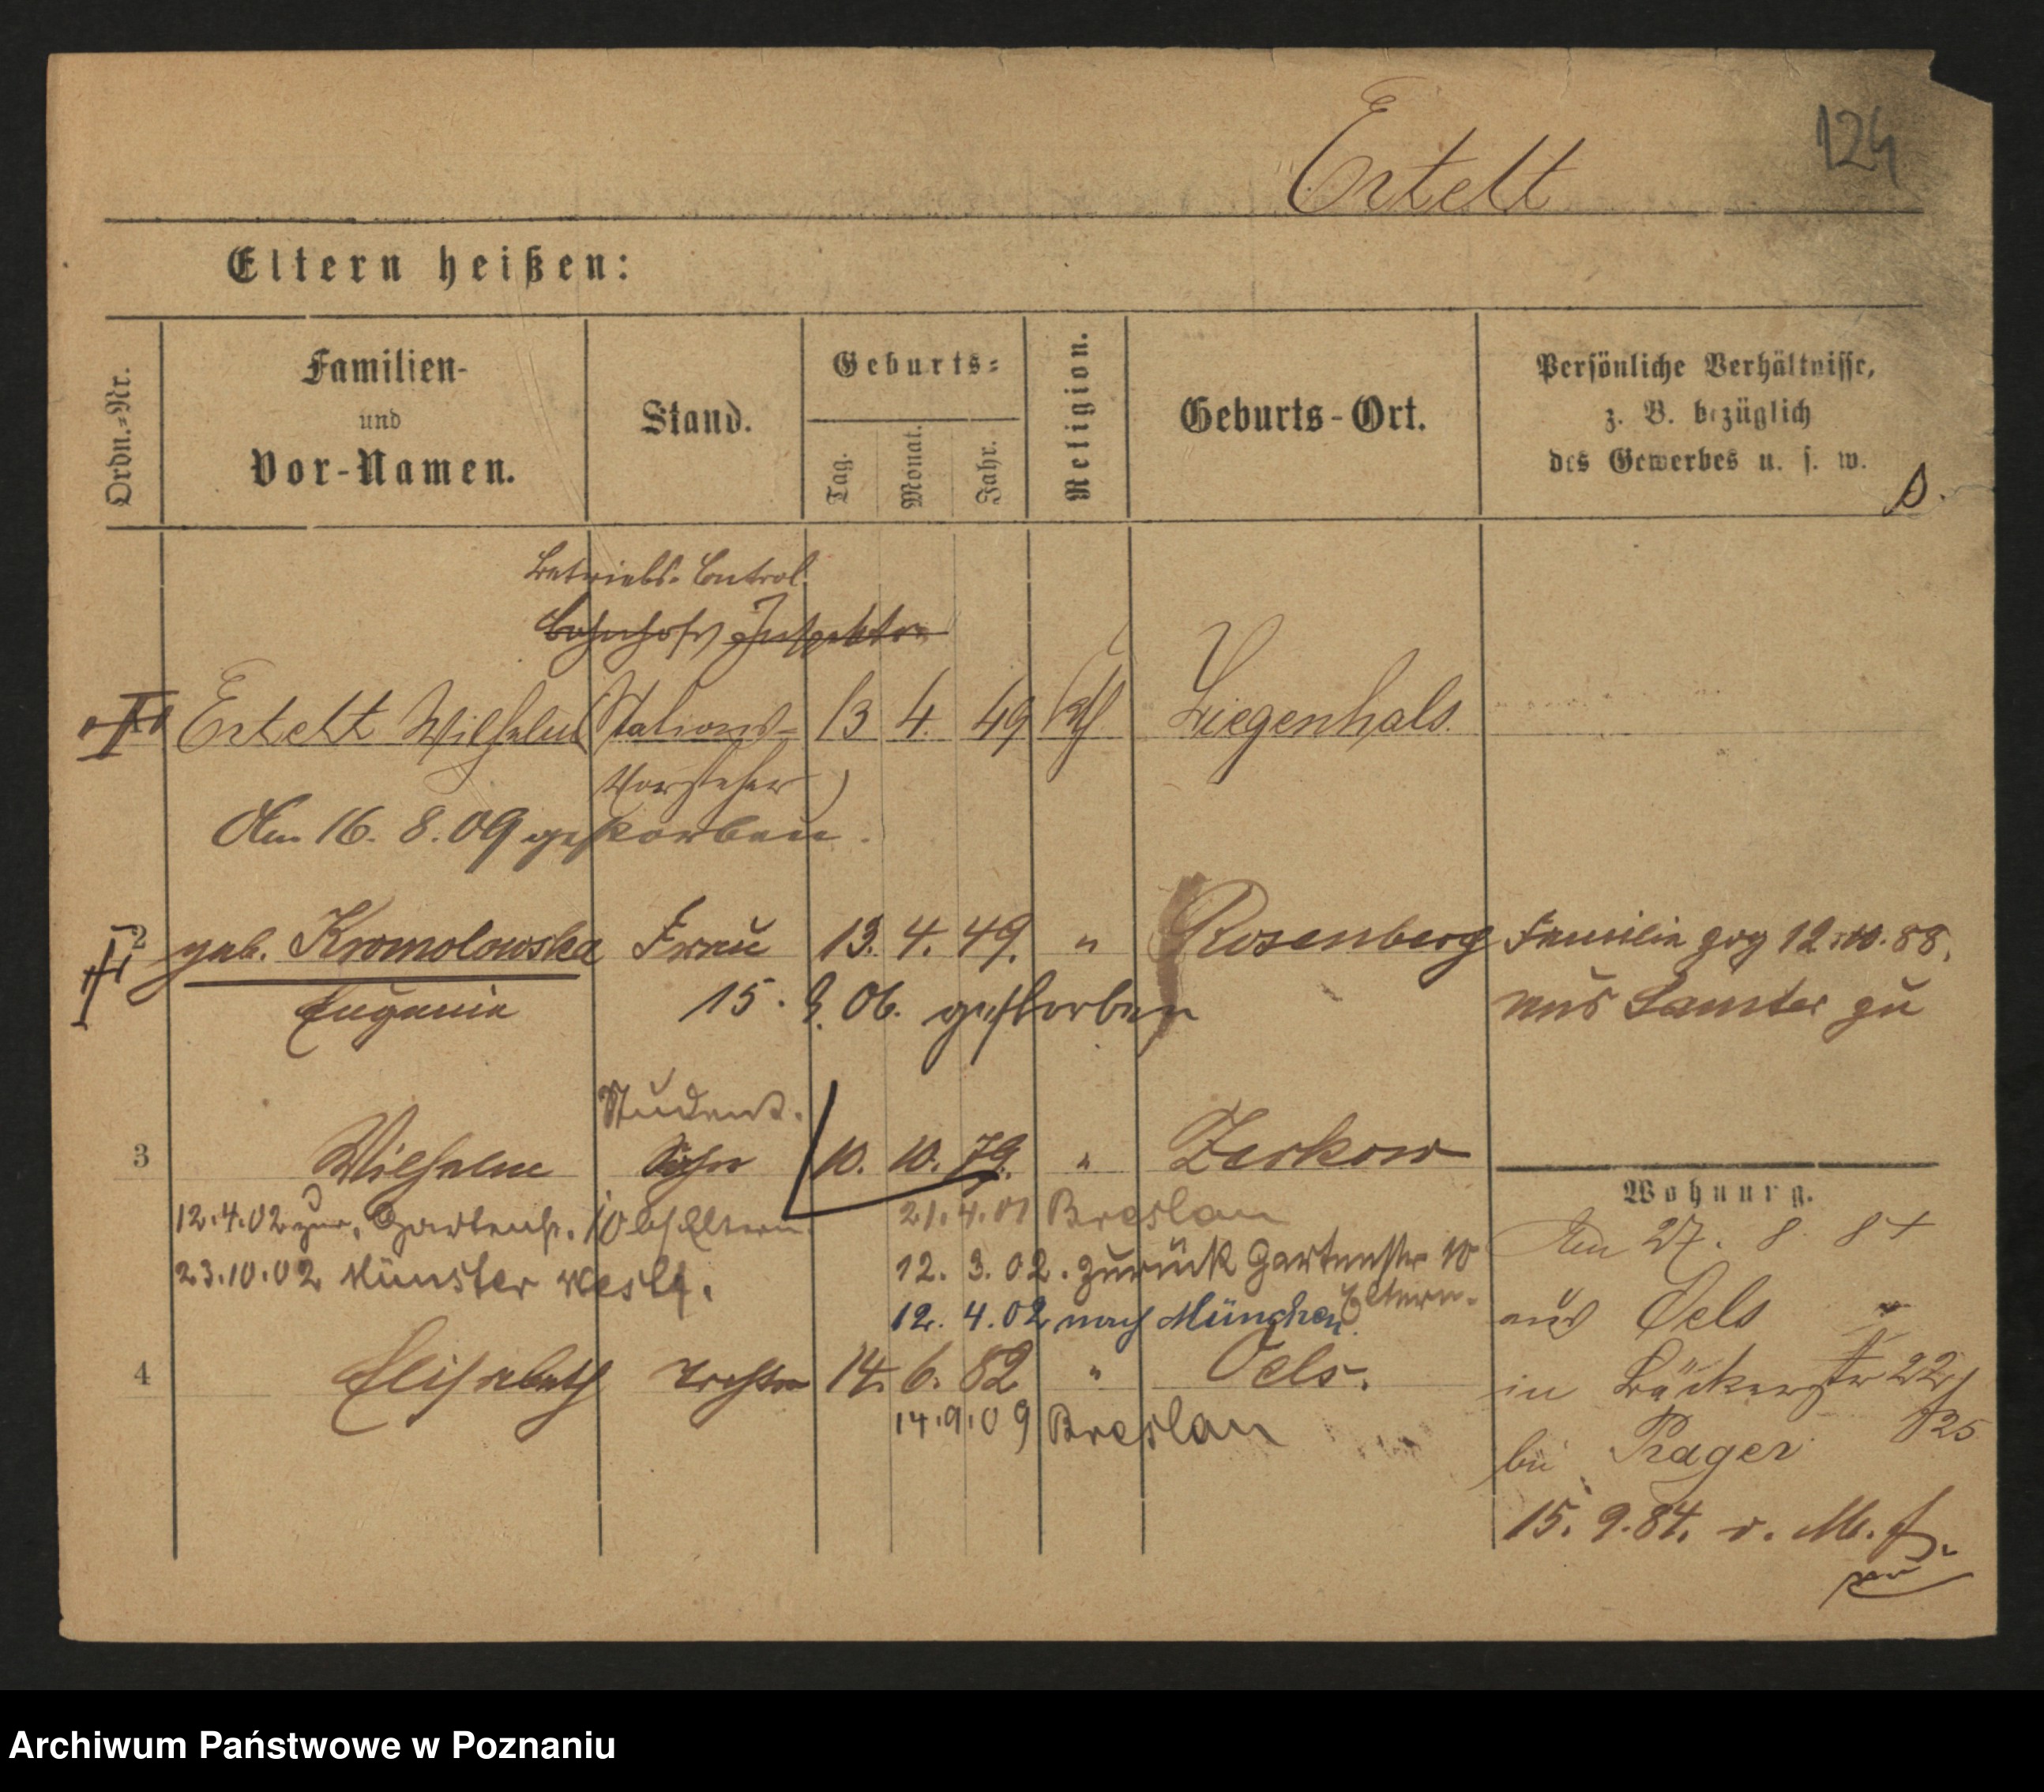 124
Ertelt
Eltern heißen:
Ordn.-Nr.
Familien-
und
Vor-Namen.
Stand.
Geburts-
Tag.
Monat.
Jahr.
Religion.
Geburts-Ort.
Persönliche Verhältnisse,
z. B. bezüglich
des Gewerbes u. s. w.
Betriebs-Control.
Bahnhofs Inspektor
Ertelt Wilhelm Stations- 13 4. 49 kth Ziegenhals.
Vorsteher
Am 16. 8. 09 gestorben.
2 geb. Kromolowska Frau 13. 4. 49. " Rosenberg Familie zog 12. 10. 88.
Eugenie 15. 9. 06. gestorben aus Samter zu
Student.
3 Wilhelm Sohn 10. 10. 79. " Zerkow
Wohnung.
12.4.02 zur. Gartenstr. 10 b/Eltern. 21.4.01 Breslau
Am 27. 8. 84
23.10.02 Münster Westf. 12. 3. 02. zurück Gartenstr 10
Eltern.
12. 4. 02 nach München.
aus Oels
4 Elisabeth Tochter 14. 6. 82 " Oels.
in Bäckerstr 22
14.9.09 Breslau
25
bei Prager
15. 9. 84. v. M.
Archiwum Państwowe w Poznaniu